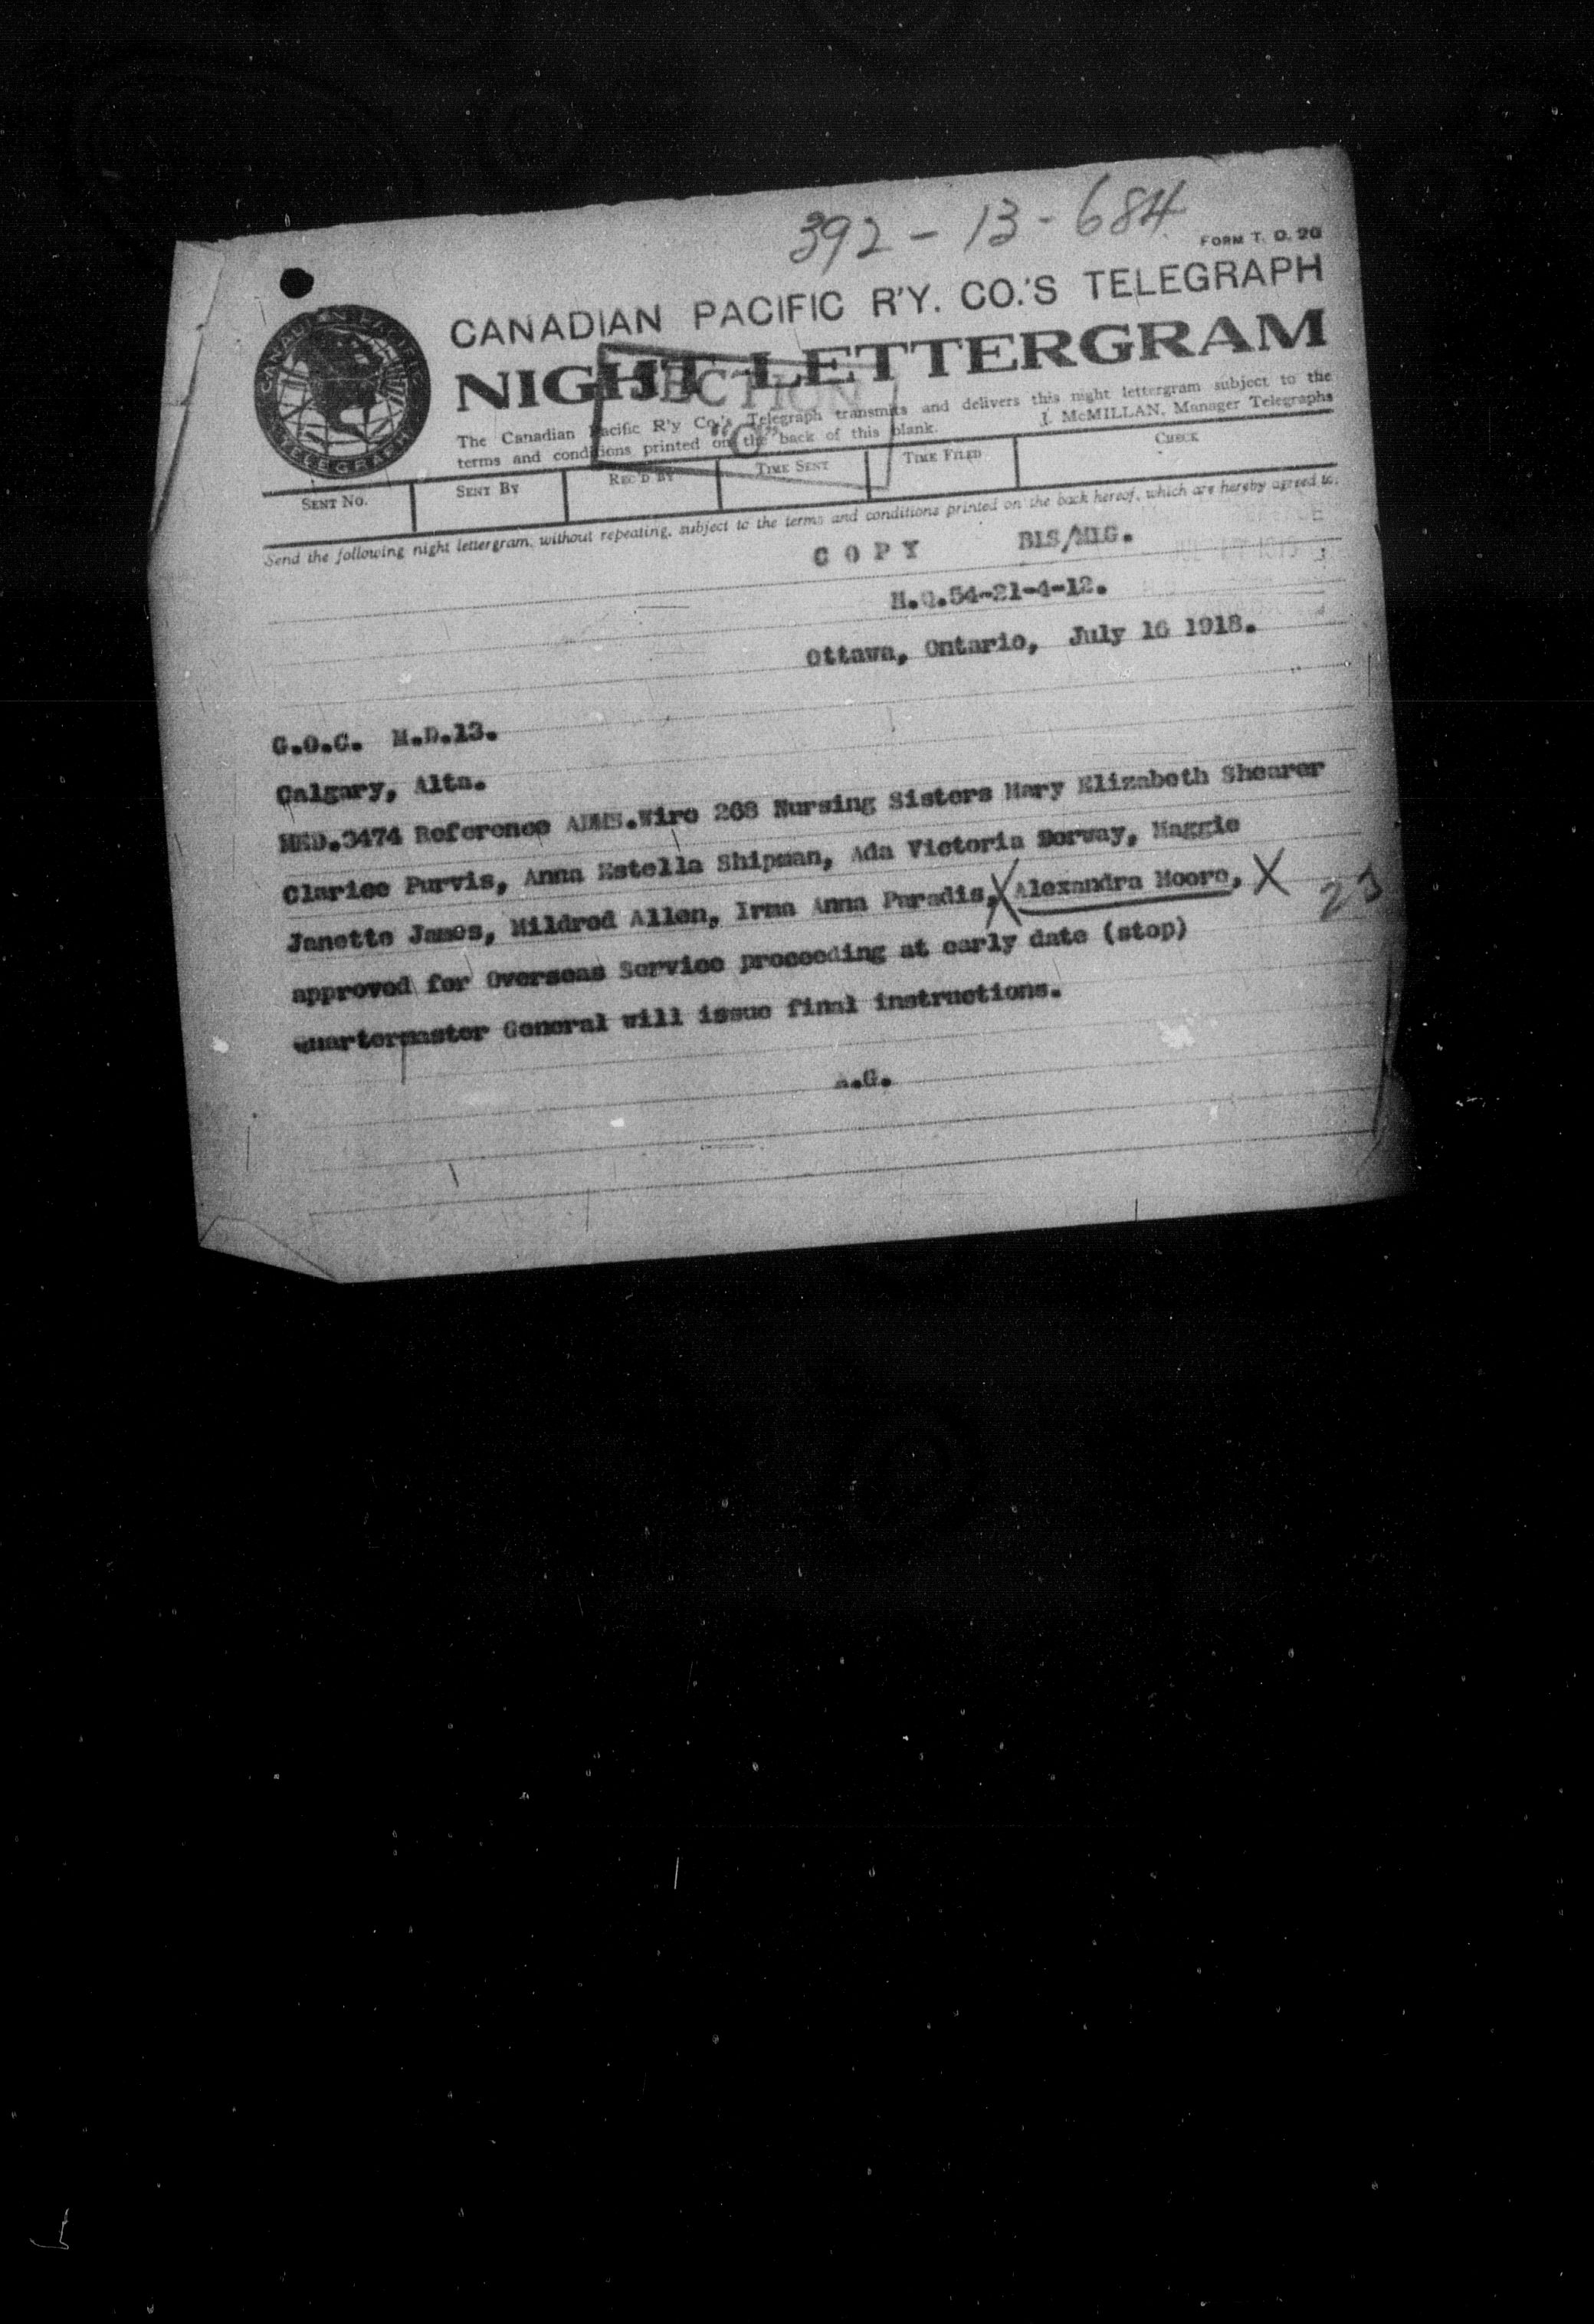 392-13-684
FORM T. D. 2G
CANADIAN PACIFIC R'Y. CO.'S TELEGRAPH
NIGHT LETTERGRAM
SECTION
"C"
CANADIAN PACIFIC
TELEGRAPH
The Canadian Pacific R'y Co.'s Telegraph transmits and delivers this night lettergram subject to the
terms and conditions printed on the back of this blank.
J. McMILLAN, Manager Telegraphs
SENT NO.
SENT BY
REC'D BY
TIME SENT
TIME FILED
CHECK
Send the following night lettergram, without repeating, subject to the terms and conditions printed on the back hereof, which are hereby agreed to.
COPY BLS/MLG.
H.Q.54-21-4-12.
Ottawa, Ontario, July 16 1918.
G.O.C. M.D.13.
Calgary, Alta.
MED.3474 Reference ADMS.Wire 268 Nursing Sisters Mary Elizabeth Shearer
Clarice Purvis, Anna Estella Shipman, Ada Victoria Dorway, Maggie
Janette James, Mildred Allen, Irma Anna Paradis, X Alexandra Moore, X 23
approved for Overseas Service proceeding at early date (stop)
Quartermaster General will issue final instructions.
A.G.